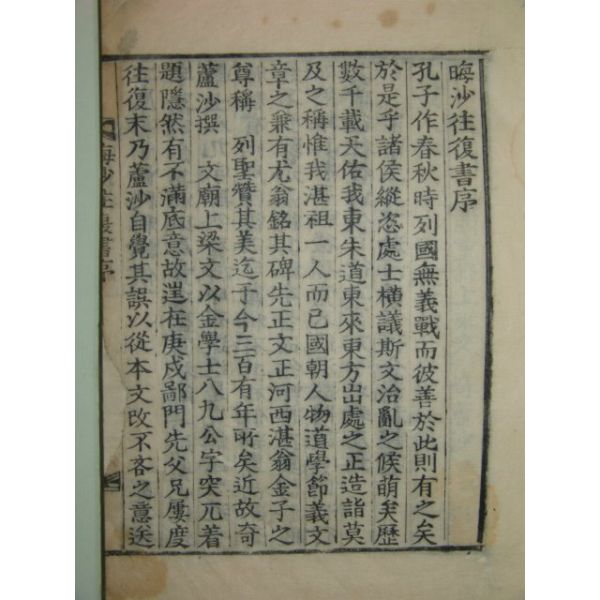 晦沙往復書序
孔子作春秋時列國無義戰而彼善於此則有之矣
於是乎諸侯縱恣處士橫議斯文治亂之候萌矣歷
數千載天佑我東朱道東來東方出處之正造詣莫
及之稱惟我湛祖一人而已國朝人物道學節義文
章之兼有尤翁銘其碑先正文正河西湛翁金子之
尊稱 列聖贊其美迄于今三百有年所矣近故奇
蘆沙撰 文廟上梁文以金學士八九公字突兀着
題隱然有不滿底意故逞在庚戌鄙門先父兄屢度
往復末乃蘆沙自覺其誤以從本文改不吝之意送
晦沙往復書序